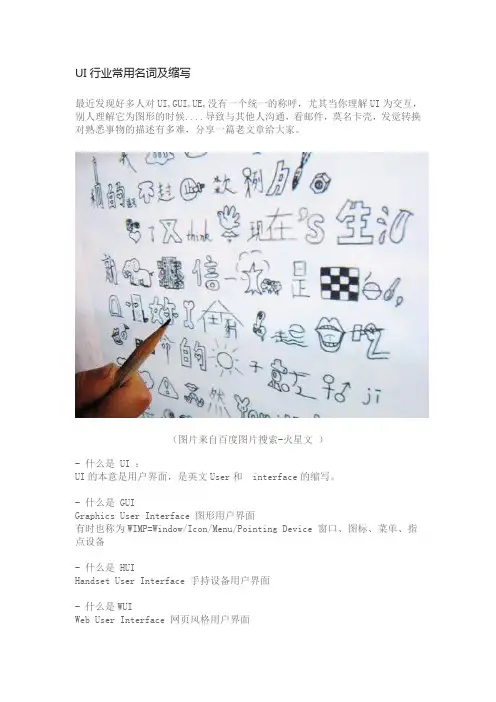 UI行业常用名词及缩写
最近发现好多人对UI,GUI,UE,没有一个统一的称呼，尤其当你理解UI为交互，
别人理解它为图形的时候....导致与其他人沟通，看邮件，莫名卡壳，发觉转换
对熟悉事物的描述有多难，分享一篇老文章给大家。
的 不起 数 例
了 又 think 现在's 生
新 信 一 是
好 I
命 的 于
然 You jī
（图片来自百度图片搜索-火星文 ）
- 什么是 UI ：
UI的本意是用户界面，是英文User和 interface的缩写。
- 什么是 GUI
Graphics User Interface 图形用户界面
有时也称为WIMP=Window/Icon/Menu/Pointing Device 窗口、图标、菜单、指
点设备
- 什么是 HUI
Handset User Interface 手持设备用户界面
- 什么是WUI
Web User Interface 网页风格用户界面